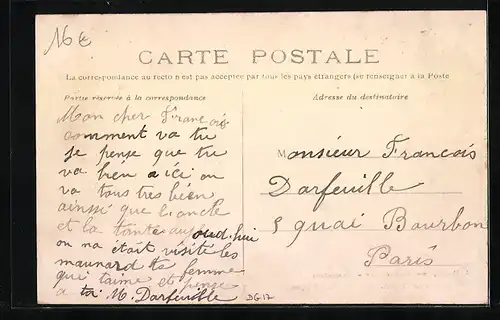 16 €
CARTE POSTALE
La correspondance au recto n'est pas acceptée par tous les pays étrangers (se renseigner à la Poste
Partie réservée à la correspondance
Adresse du destinataire
Mon cher Francois
comment va tu
je pense que tu
va bien a ici on
va tous tres bien
ainsi que l'oncle
et la tante aujoud.hui
on na était visité les
maunard ta femme
qui t'aime et pense
a toi M. Darfeuille
DG17
Monsieur Francois
Darfeuille
5 quai Bourbon
Paris